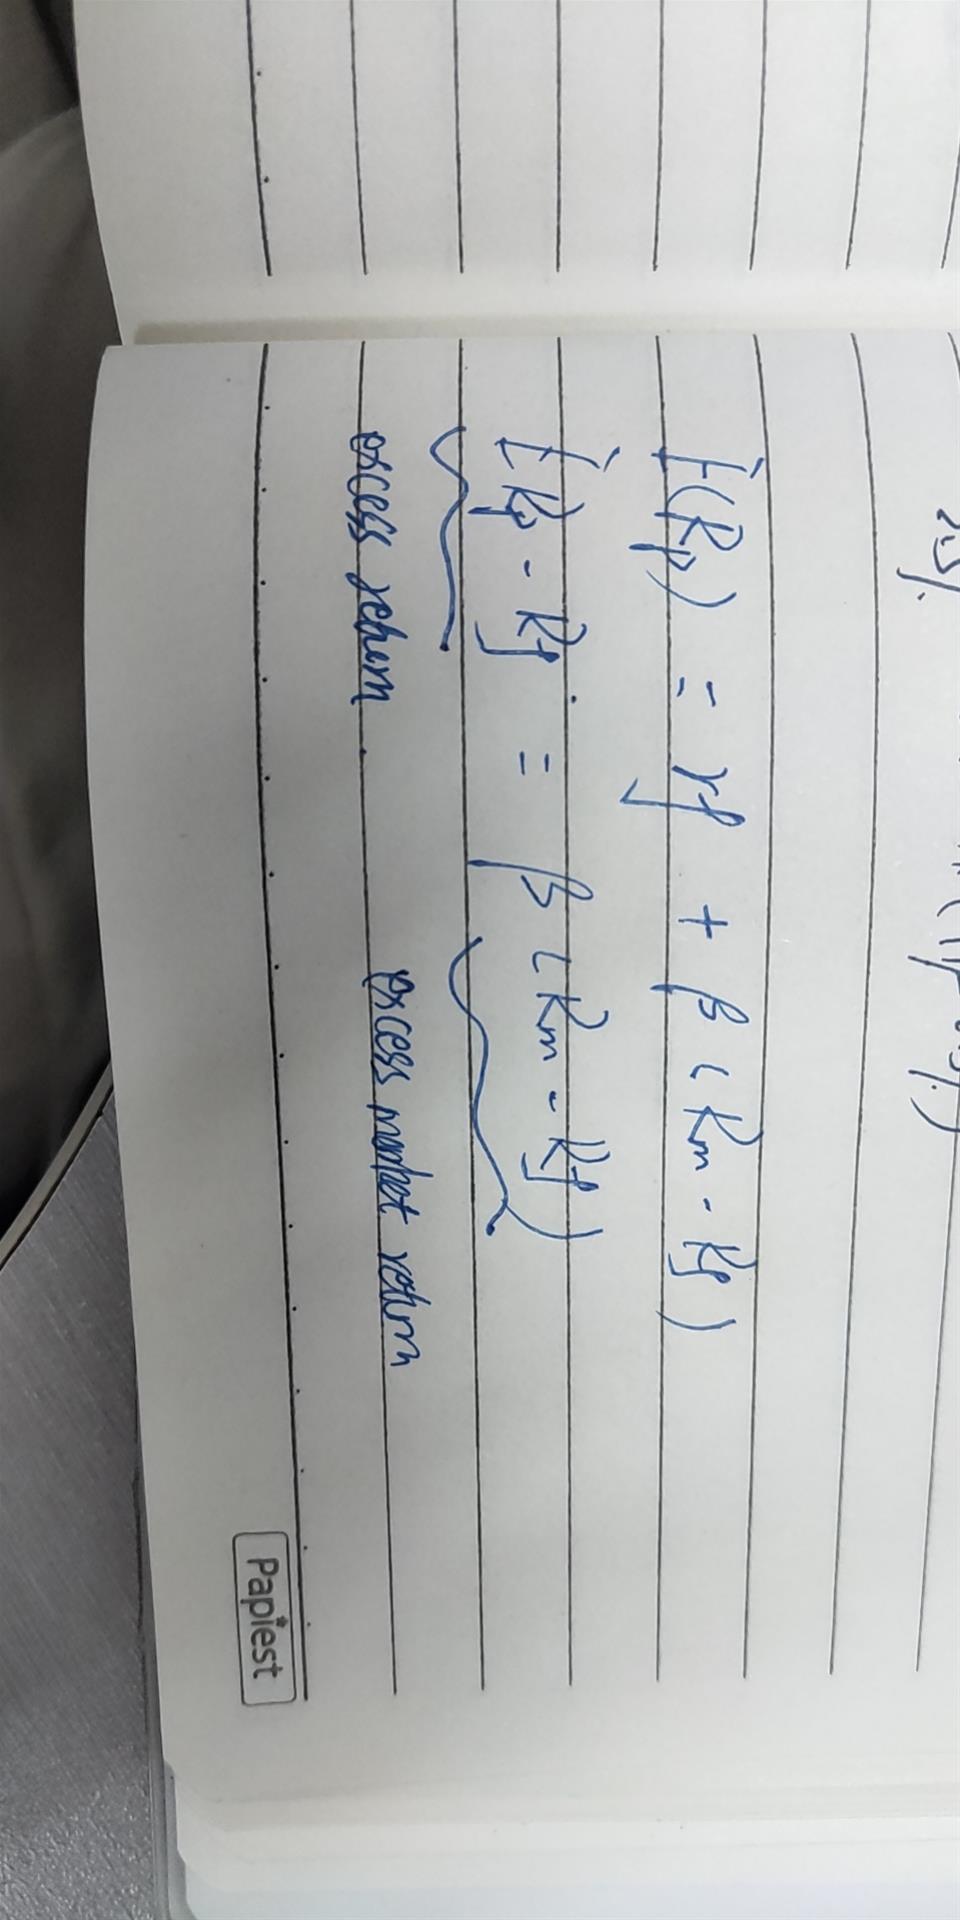 E(Rp) = rf + β (Rm - Rf)
E Rp - Rf = β (Rm - Rf)
excess return excess market return
Papiest